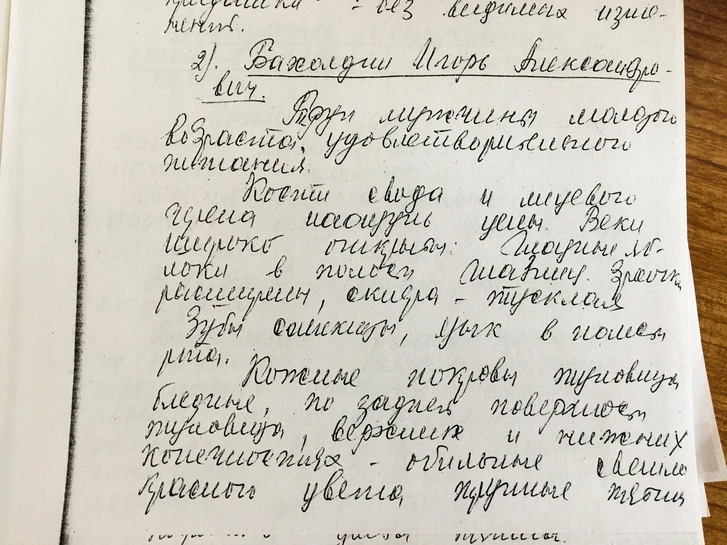 без видимых изме-
нений.
2). Бахолдин Игорь Александро-
вич.
Труп мужчины молодого
возраста, удовлетворительного
питания.
Кости свода и лицевого
черепа наощупь целы. Веки
широко открыты. Глазные яб-
локи в полости глазниц. Зрачки
расширены, склера - тусклая
Зубы сомкнуты, язык в полости
рта.
Кожные покровы туловища
бледные, по задней поверхности
туловища, верхних и нижних
конечностях - обильные светло
красного цвета трупные пятна